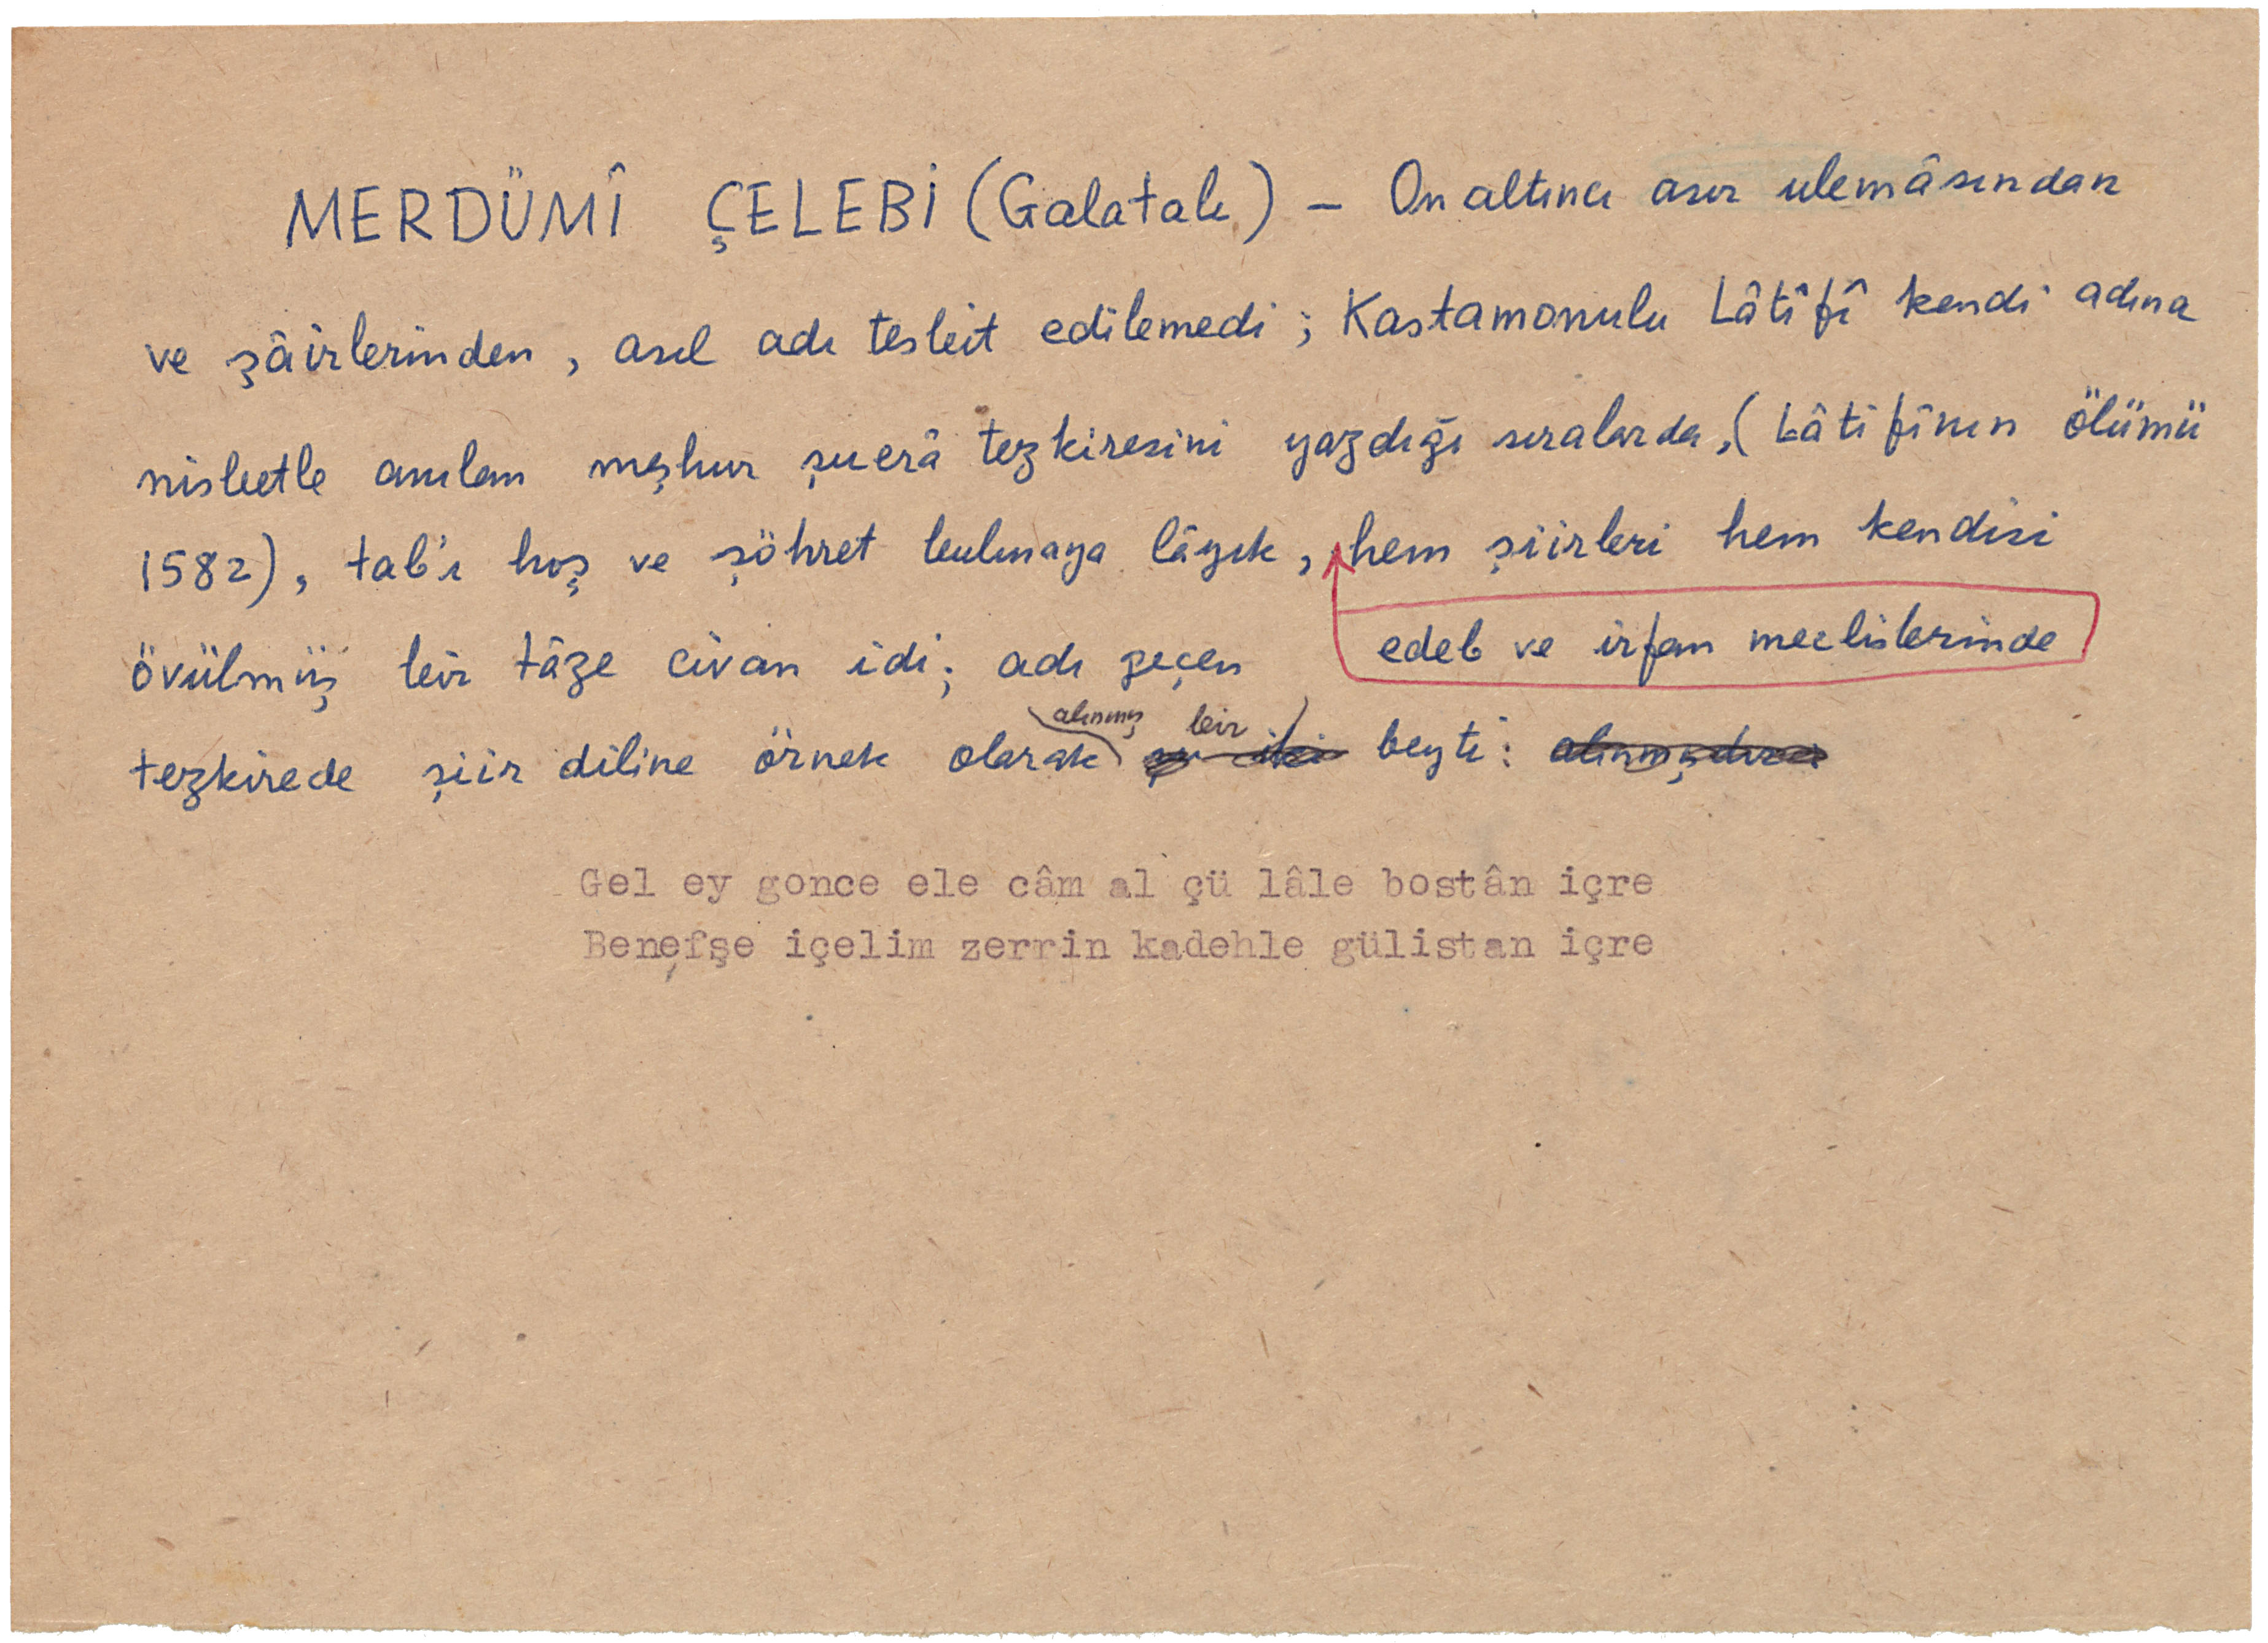 MERDÜMÎ ÇELEBİ (Galatalı) – On altıncı asır ulemâsından
ve şâirlerinden, asıl adı tesbit edilemedi; Kastamonulu Lâtîfî kendi adına
nisbetle anılan meşhur şuerâ tezkiresini yazdığı sıralarda, (Lâtîfînin ölümü
1582), tab'ı hoş ve şöhret bulmaya lâyık, hem şiirleri hem kendisi
edeb ve irfan meclislerinde
övülmüş bir tâze civan idi; adı geçen
alınmış bir
tezkirede şiir diline örnek olarak şu iki beyti: alınmışdır:
Gel ey gonce ele câm al çü lâle bostân içre
Benefşe içelim zerrin kadehle gülistan içre